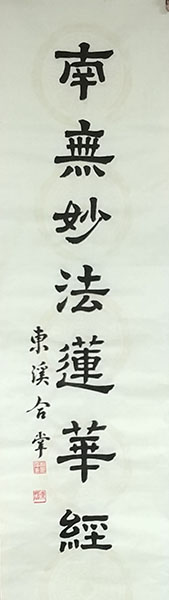 南無妙法蓮華經
東溪合掌